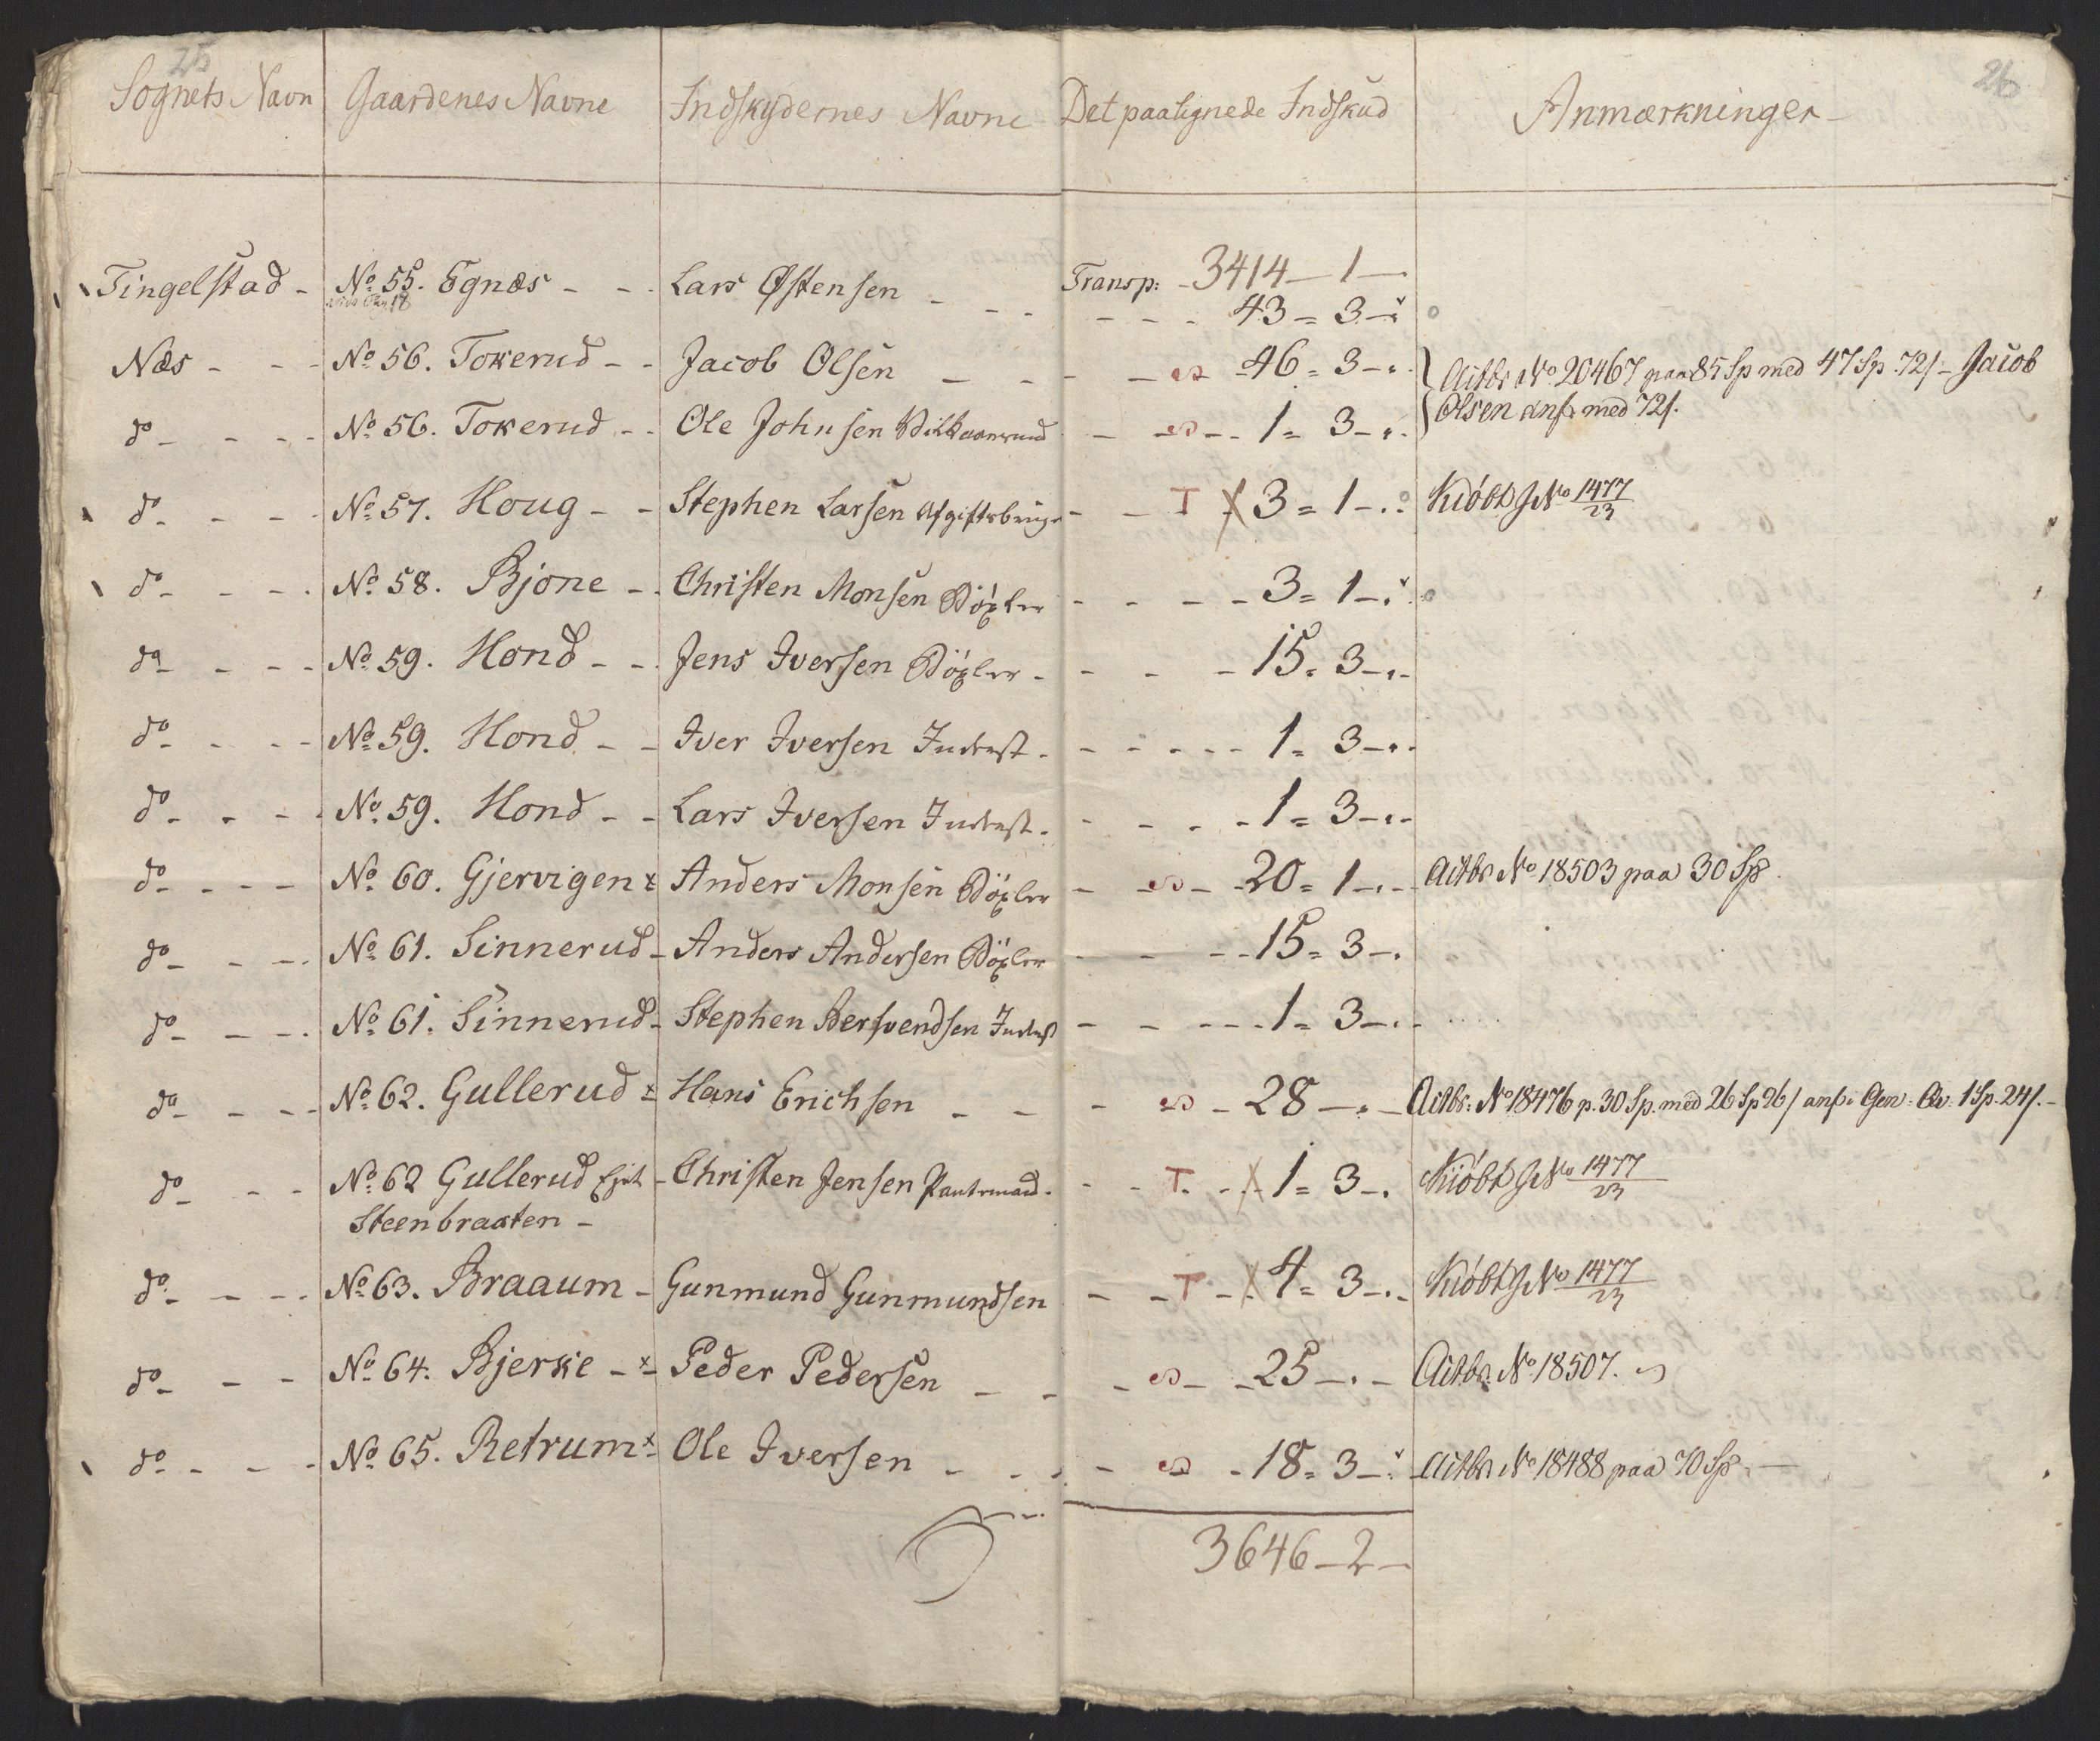 25
26
Sognets Navn Gaardenes Navne Indskydernes Navne Det paalignede Indskud Anmærkninger
Transp: 3414 — 1 —
Tingelstad - No 55. Egnæs - - Lars Østensen - - - 43 = 3 -
Næs - - - No 56. Tokerud - - Jacob Olsen - - 46 = 3 - Actbr No 20467 paa 85 Sp med 47 Sp 72/ - Jacob
do - - - No 56. Tokerud - - Ole Johnsen - - 1 = 3 - Olsen anf. med 72/.
do - - - No 57. Houg - - Stephen Larsen - - T X 3 = 1 - Kiöbt J No 1477/23
do - - - No 58. Bjone - - Christen Monsen - - - 3 = 1 -
do - - - No 59. Hond - - Jens Iversen - - - 15 = 3 -
do - - - No 59. Hond - - Iver Iversen Inderst - - - 1 = 3 -
do - - - No 59. Hond - - Lars Iversen Inderst - - - 1 = 3 -
do - - - No 60. Gjervigen x Anders Monsen - - 20 = 1 - Actbr No 18503 paa 30 Sp.
do - - - No 61. Sinnerud - Anders Andersen - - - 15 = 3 -
do - - - No 61. Sinnerud - Stephen Bersvendsen Inderst - - - 1 = 3 -
do - - - No 62. Gullerud x Hans Erichsen - - - 28 - Actbr: No 18476 p. 30 Sp. med 26 Sp 96/ anf. Gen: Qv: 1 Sp. 24/. -
do - - - No 62 Gullerud Ejet - Christen Jensen - - T X 1 = 3 - Kiöbt J No 1477/23
Steenbraaten -
do - - - No 63. Braaum - Gunmund Gunmundsen - - T X 4 = 3 - Kiöbt J No 1477/23
do - - - No 64. Bjerke - x Peder Pedersen - - - 25 - Actbr. No 18507.
do - - - No 65. Retrum x Ole Iversen - - - 18 = 3 - Actbr No 18488 paa 70 Sp. —
3646 — 2 —